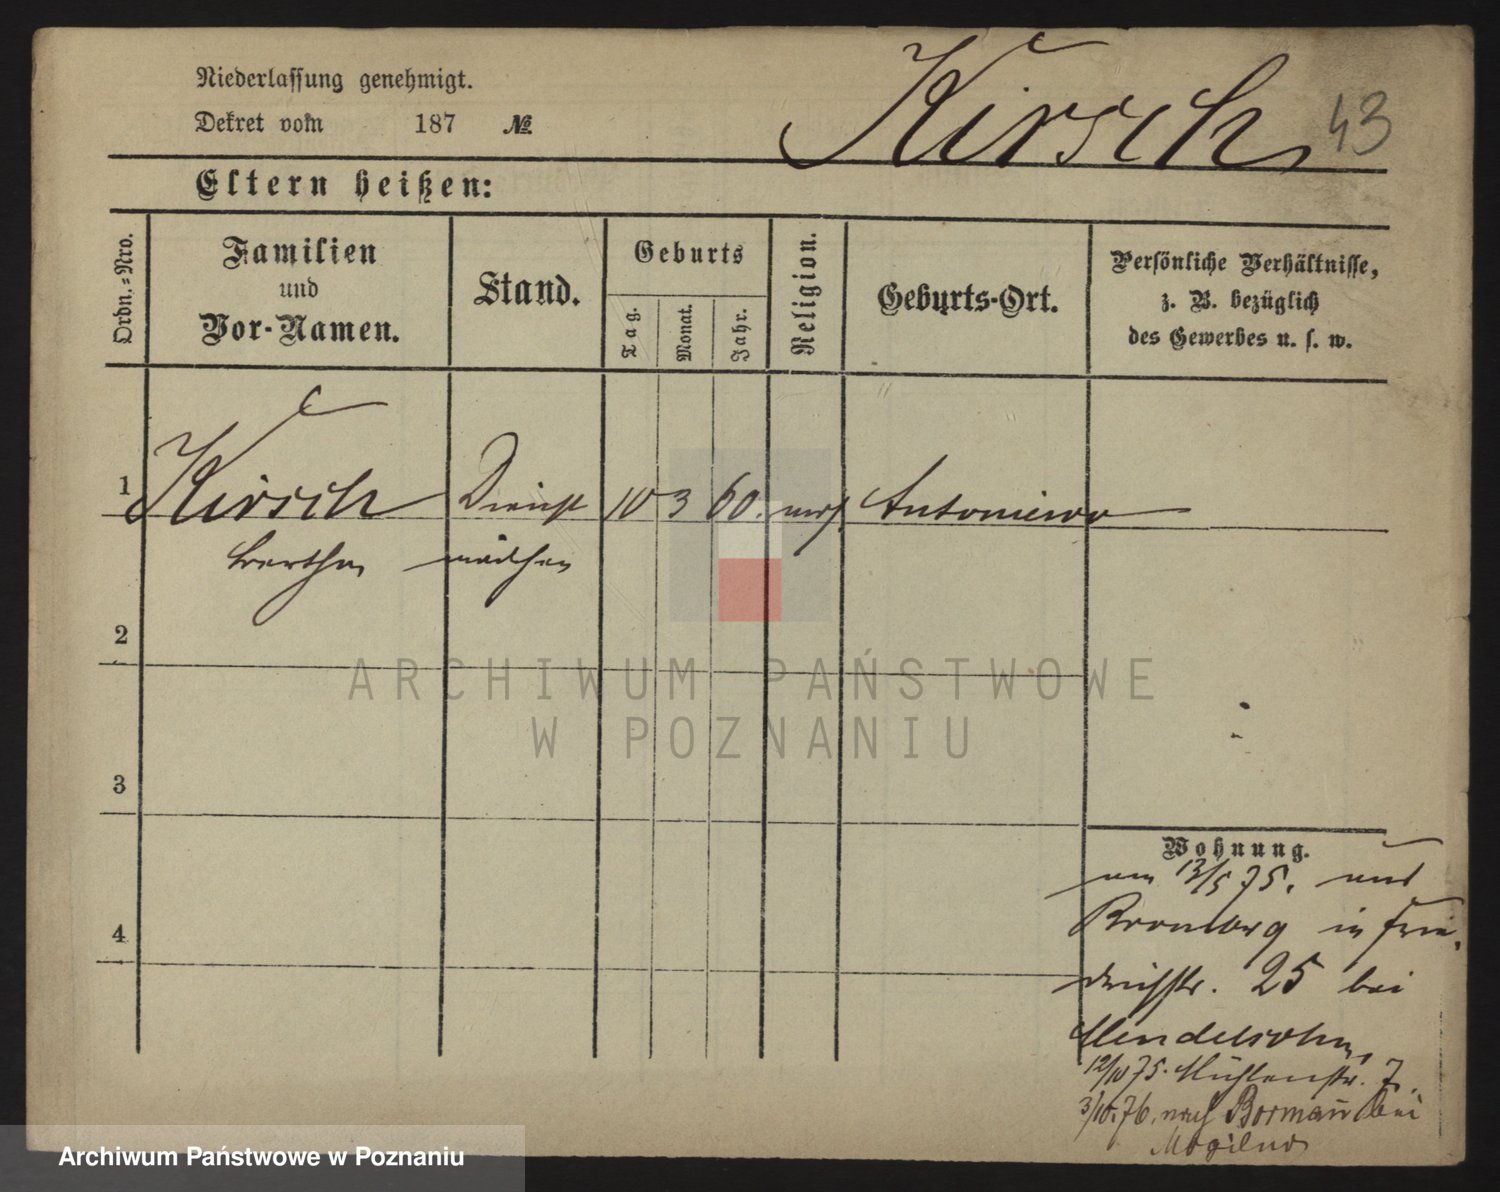 Niederlassung genehmigt.
Dekret vom 187 №
Kirsch 43
Eltern heißen:
Ordn.-Nro.
Familien
und
Vor-Namen.
Stand.
Geburts
Tag.
Monat.
Jahr.
Religion.
Geburts-Ort.
Persönliche Verhältnisse,
z. B. bezüglich
des Gewerbes u. s. w.
1 Kirsch Dienst 10 3 60. Antoniewo
Bertha mädchen
2
3
4
ARCHIWUM PAŃSTWOWE
W POZNANIU
Wohnung.
13/5 75.
Bromberg in Frie-
drichstr. 25 bei
Mendelsohn,
12/10 75. Mühlenstr. 7.
3/10. 76. nach Bormann bei
Mogilno
Archiwum Państwowe w Poznaniu